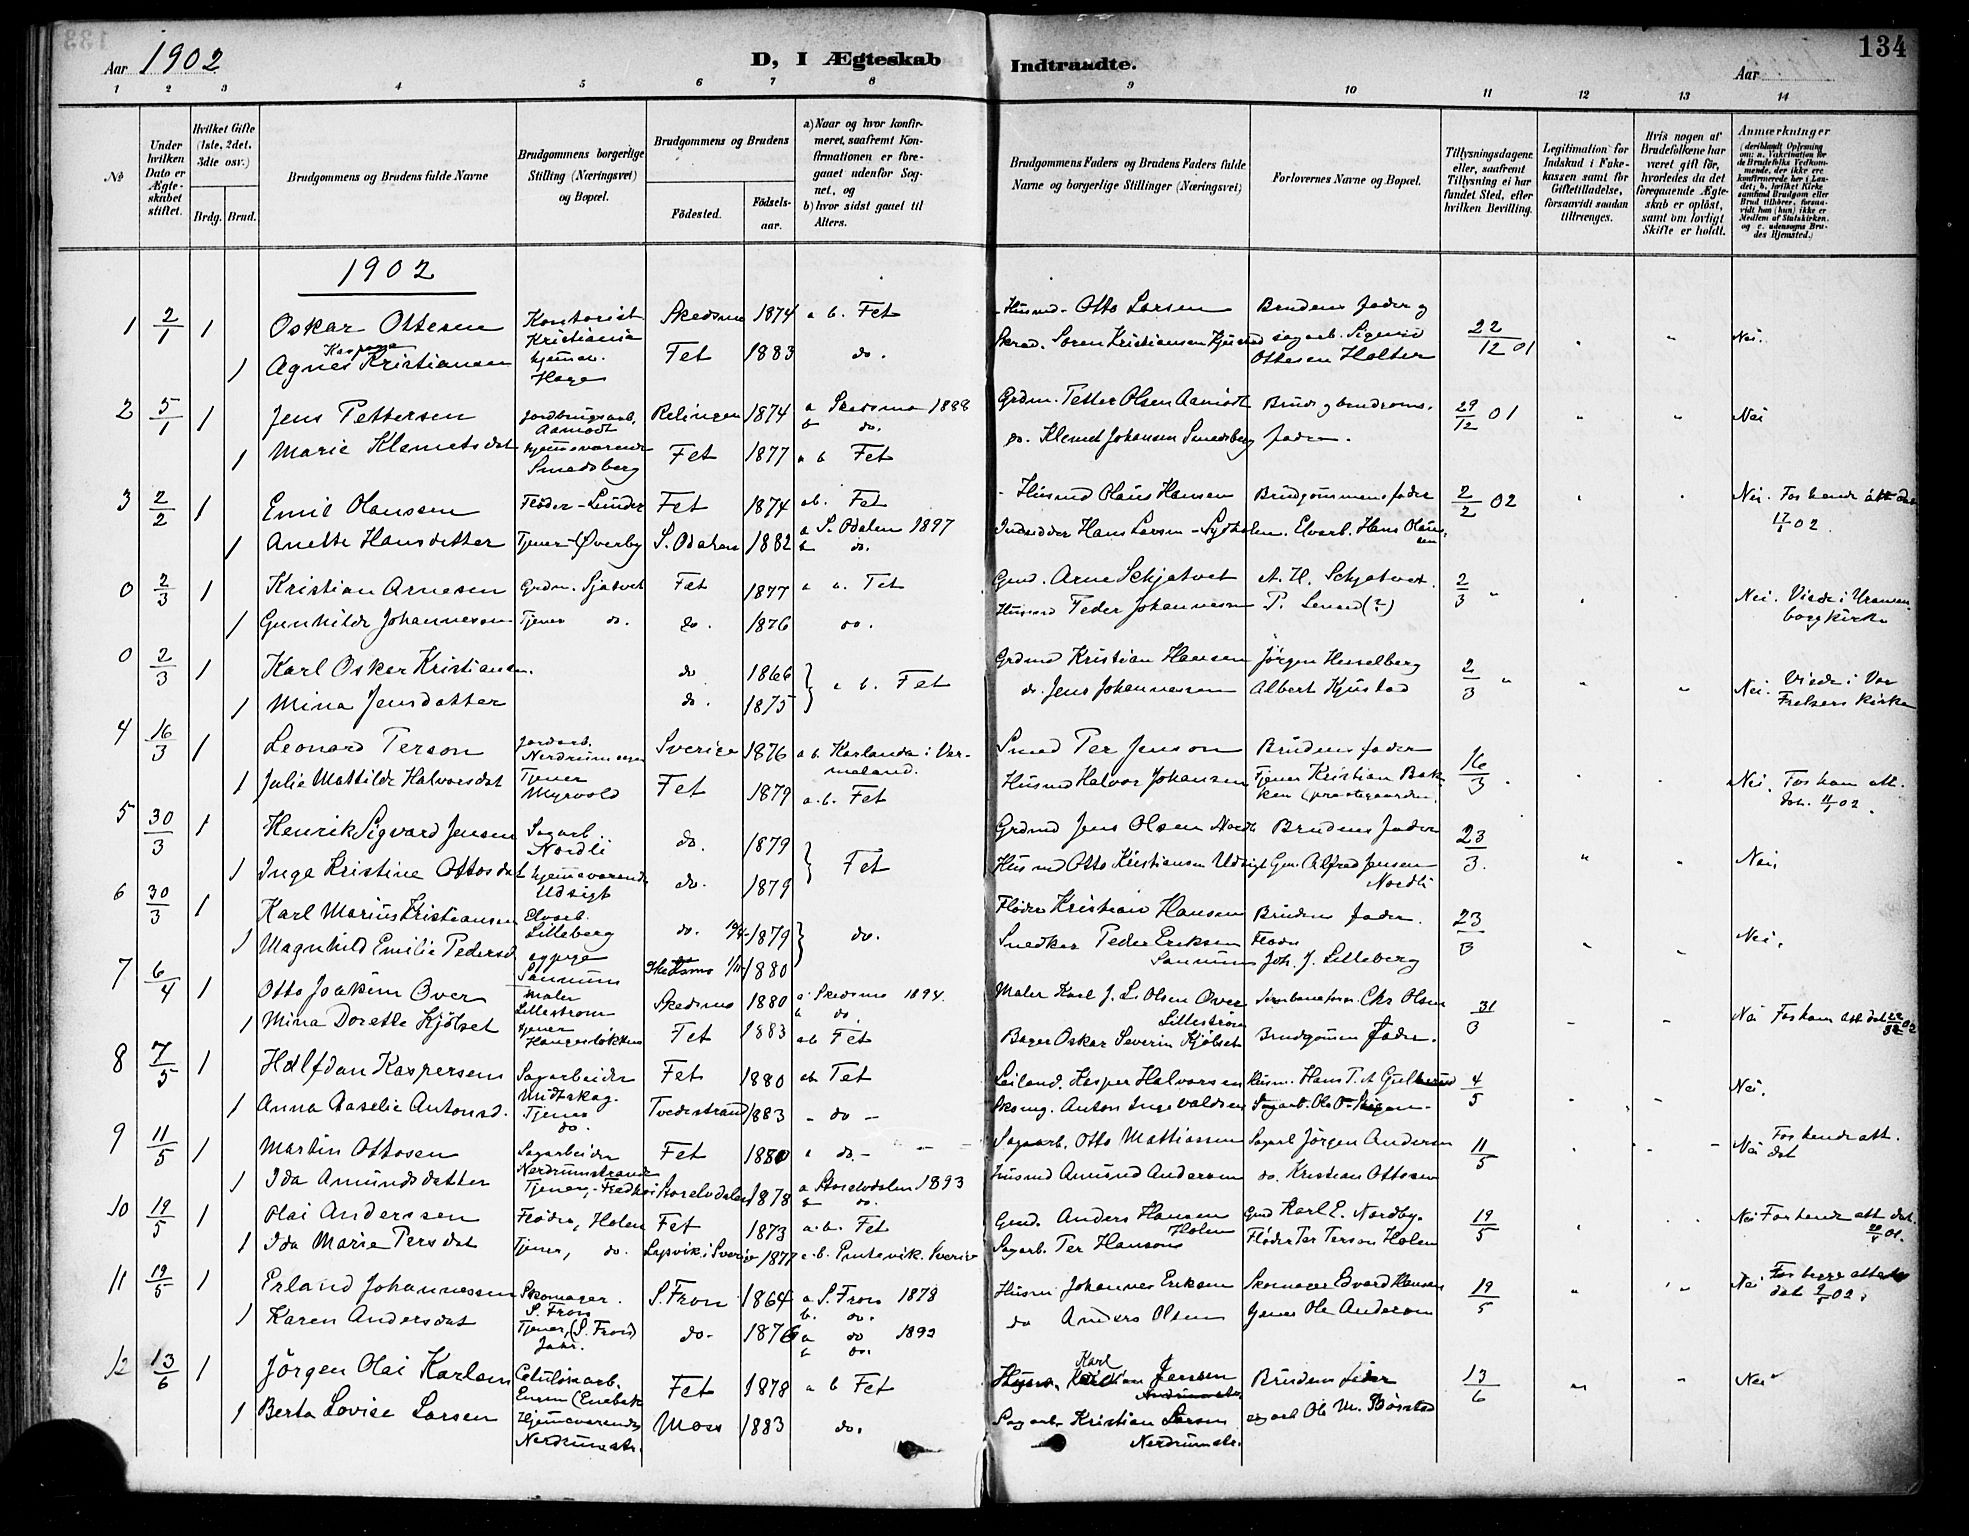 134
Aar 1902
D, I Ægteskab Indtraadte.
Aar
1 2 3 4 5 6 7 8 9 10 11 12 13 14
No
Under hvilken Dato er Ægteskabet stiftet.
Hvilket Gifte (1ste, 2det, 3die osv.)
Brdg. Brud.
Brudgommens og Brudens fulde Navne
Brudgommens borgerlige Stilling (Næringsvei) og Bopæl.
Brudgommens og Brudens
Fødested. Fødselsaar.
a) Naar og hvor konfirmeret, saafremt Konfirmationen er foregaaet udenfor Sognet, og
b) hvor sidst gaaet til Alters.
Brudgommens Faders og Brudens Faders fulde Navne og borgerlige Stillinger (Næringsvei)
Forlovernes Navne og Bopæl.
Tillysningsdagene eller, saafremt Tillysning ei har fundet Sted, efter hvilken Bevilling.
Legitimation for Indskud i Enkekassen samt for Giftetilladelse, forsaavidt saadan tiltrænges.
Hvis nogen af Brudefolkene har været gift før, hvorledes da det foregaaende Ægteskab er opløst, samt om lovligt Skifte er holdt.
Anmærkninger (deriblandt Oplysning om: a. Vakcination for de Brudefolks Vedkommende, der ikke ere konfirmerede her i Landet; b. hvilket Kirkesamfund Brudgom eller Brud tilhører, forsaavidt han (hun) ikke er Medlem af Statskirken, og c. udensogns Brudes Hjemsted.)
1902
1 2/1 1 Oskar Ottesen Kontorist Kristiania Skedsmo 1874 a b. Fet Husmd. Otto Larsen Brudens fader og
1 Agnes Kaspara Kristiansen hjemmev. Hage Fet 1883 do. Skræd. Soren Kristiansen sagarb. Sigurd Ottesen Holter 22/12 01 Nei.
2 5/1 1 Jens Pettersen Jordbrugsarb. Aamodt Relingen 1874 a Skedsmo 1888 b do. Grdm. Petter Olsen Aamodt Bruds og brudgoms. 29/12 01 Nei
1 Marie Klemetsdat hjemmeværende Smedsberg Fet 1877 a b Fet do. Klemet Johansen Smedsberg fader.
3 2/2 1 Emil Olaussen Fløder - Lunder Fet 1874 ab. Fet Husmd Olaus Hansen Brudgommens fader 2/2 02 Nei. For hende att dat
1 Anette Hansdatter Tjener - Øverby S. Odalen 1882 a S. Odalen 1897 b do. Indsidder Hans Larsen Elvarb. Hans Olaussen 17/1 02.
0 2/3 1 Kristian Arnesen Grdm. Sjatvet Fet 1877 a b. Fet Gmd. Arne Schjatvet A. H. Schjatvet. 2/3 " Nei. Viede i Uranienborg kirke
1 Gunhilde Johannesen Tjener do. do. 1876 do. Husmd Peder Johannesen P. Lenard (?)
0 2/3 1 Karl Oskar Kristiansen. do 1866 a b. Fet Grdmd Kristian Hansen Jørgen Hesselberg 2/3 " Nei. Viede i Vor Frelsers kirke
1 Mina Jensdatter do. 1875 do. Jens Johannessen Albert Kjustad
4 16/3 1 Leonard Person Jordarb. Sverige 1876 a b. Karlanda i Vermeland. Smed Per Jenson Brudens fader 16/3. Nei. For ham att. dat. 11/3 02.
1 Julie Mathilde Halvorsdat Tjener Myrvold Fet 1879 a. b. Fet Husmd Halvor Johansen Tjener Kristian Bakken (præstegaarden.
5 30/3 1 Henrik Sigvard Jensen Sagarb. Nordli do. 1879 Fet Grdmd Jens Olsen Nordli Brudens fader 23/3. Nei.
1 Inga Kristine Ottosdat hjemmeværende Udsigt do. 1879 Husmd Otto Kristiansen Udsigt Gm. Alfred Jensen Nordli
6 30/3 1 Karl Marius Kristiansen Elvarb. Lilleberg do. 1879 do. Fløder Kristian Hansen Brudens fader. 23/3 Nei.
1 Magnhild Emilie Pedersd sypige Sannum Skedsmo 1880 Snedker Peder Eriksen Sannum Fløder Joh. J. Lilleberg
7 6/4 1 Otto Joakim Over Maler Lillestrøm Skedsmo 1880 a Skedsmo 1894. b do. Maler Karl J. L. Olsen Over Lillestrøm Chr Olsen 31/3 Nei For ham att dat 02
1 Mina Dorette Kjölset Tjener Fet 1883 ab Fet Bager Oskar Severin Kjölset Brudgommens Fader.
8 7/5 1 Halfdan Kaspersen Sagarbeider Midtskog. Fet 1880 ab Fet Leiland. Kasper Halvorsen Husm. Hans P. A 4/5 Nei.
1 Anna Antonsd. Tjener do. Tvedestrand 1883 - do - Skomg. Anton Ingevaldsen Sagarb. Ole
9 11/5 1 Martin Ottosen Sagarbeider Nerdrumstrand Fet 1880 a do. Sagarb. Otto Mattiassen Sagarb Jörgen Andersen 11/5 Nei For hende att. dat
1 Ida Amundsdatter Tjener, Storelvdalen 1878 a Storelvdalen 1893 b do. Husmd Amund Andersen do. Kristian Ottosen
10 19/5 1 Olai Anderssen Fløder, Holen Fet 1873 a. b. Fet Gmd. Anders Hansen Holen Gmd Karl E. Nordby. 19/5 Nei For hende att dat.
1 Ida Marie Persdat Tjener, do. Lysvik i Sverige 1877 a. b. Sverige Sagarb. Per Hanson Fløder Per Person Holen
11 19/5 1 Erland Johannessen Skomager. S. Fron S. Fron 1864 a S. Fron 1878 b. do. Husm Johannes Eriksen Skomager Edvard Hansen 19/5 Nei For begge attester dat 9/5 02.
1 Karen Andersdat Tjener, (S. Fron) Jahr. do. 1876 a do 1892 b do. do Anders Olsen Tjener Ole Andersen
12 13/6 1 Jörgen Olai Karlsen Celulosearb. Fet 1878 a b Fet Karl Jensen Brudens fader 13/6 Nei
1 Berta Lovise Larsen Hjemmeværende Nerdrumstr. Moss 1883 do. Sagarb Kristian Larsen Nerdrumstr. Ole M. Börstad